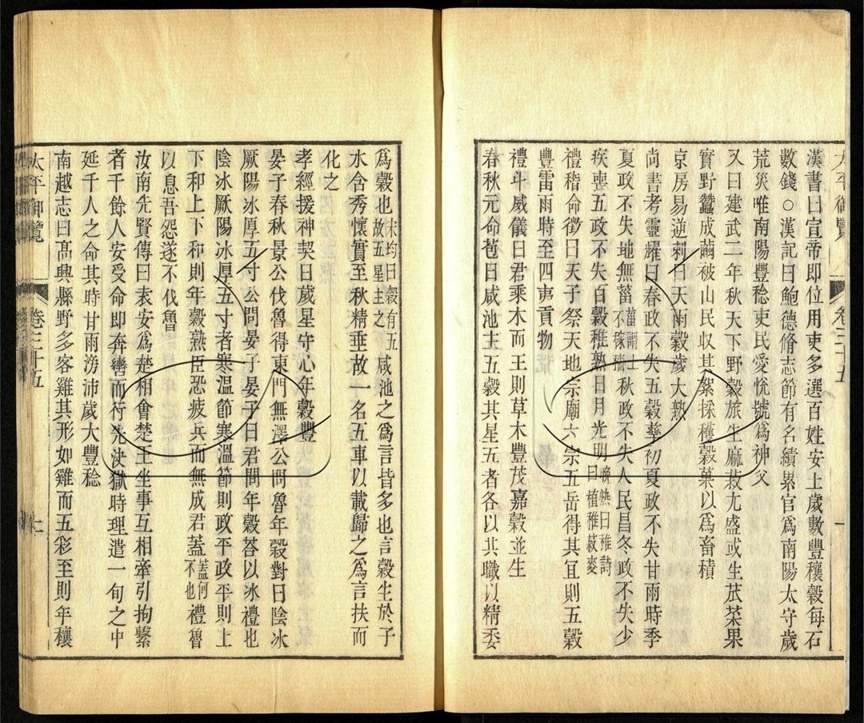 漢書曰宣帝即位用吏多選百姓安土歲數豐穰穀每石
數錢○漢記曰鮑德脩志節有名績累官爲南陽太守歲
荒災唯南陽豐稔吏民愛悅號爲神父
又曰建武二年秋天下野穀旅生麻菽尤盛或生苽菜果
實野蠶成繭被山民収其絮採穫穀菓以爲畜積
京房易逆刺曰天雨穀歲大熟
尚書考靈耀曰春政不失五穀孳初夏政不失甘雨時季
夏政不失地無菑 秋政不失人民昌冬政不失少
疾喪五政不失百穀稚熟日月光明 晚熟曰稚詩曰植稚菽麥
禮稽命徵曰天子祭天地宗廟六宗五岳得其宜則五穀
豐雷雨時至四夷貢物
禮斗威儀曰君乘木而王則草木豐茂嘉穀並生
春秋元命苞曰咸池主五穀其星五者各以其職以精委
太平御覽 卷三十五 一
爲穀也 宋均曰穀有五故五星主之 咸池之爲言皆多也言穀生於子
水含秀懷實至秋精垂故一名五車以載歸之爲言扶而
化之
孝經援神契曰歲星守心年穀豐
晏子春秋景公伐魯得東門無澤公問魯年穀對曰陰冰
厥陽冰厚五寸公問晏子晏子曰君問年穀荅以冰禮也
陰冰厥陽冰厚五寸者寒溫節寒溫節則政平政平則上
下和上下和則年穀熟臣恐疲兵而無成君蓋 蓋何不也 禮魯
以息吾怨遂不伐魯
汝南先賢傳曰袁安爲楚相會楚王坐事互相牽引拘繫
者千餘人安受命即奔轡而行先決獄時理遣一旬之中
延千人之命其時甘雨滂沛歲大豐稔
南越志曰髙興縣野多客雞其形如雞而五彩至則年穰
太平御覽 卷三十五